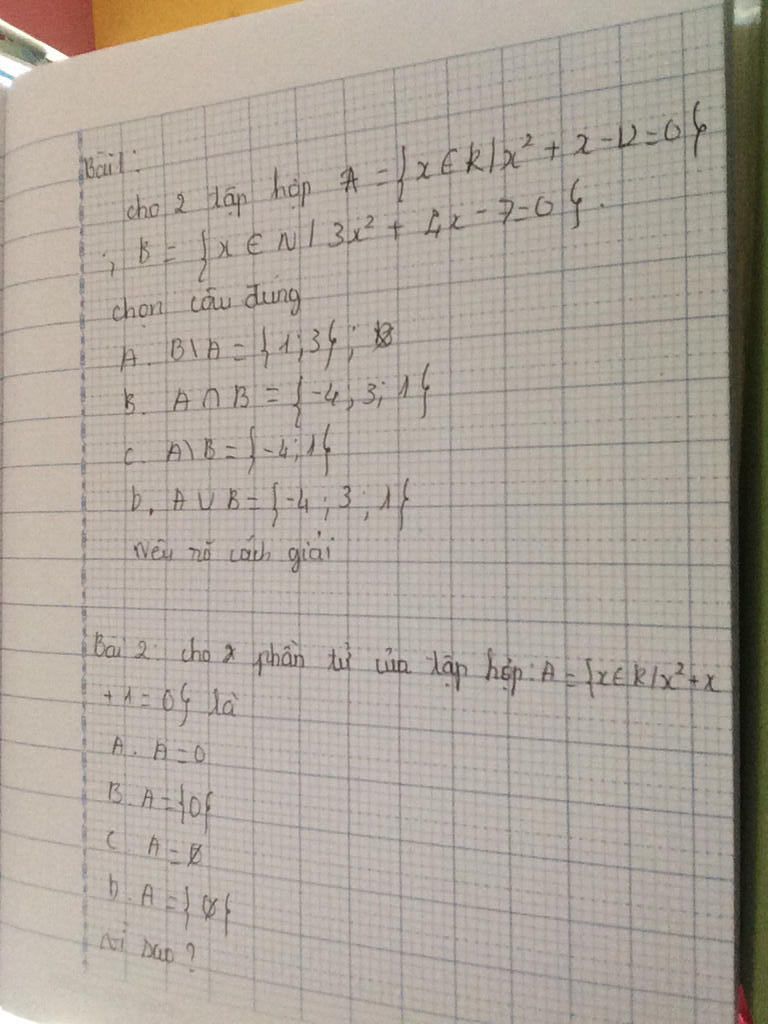 Bài 1:
cho 2 tập hợp A = {x ∈ R / x² + x - 12 = 0}
; B = {x ∈ N / 3x² + 4x - 7 = 0}.
chọn câu đúng
A. B \ A = {1; 3};
B. A ∩ B = {-4; 3; 1}
C. A \ B = {-4; 1}
D. A ∪ B = {-4; 3; 1}
Nêu rõ cách giải
Bài 2: cho x phần tử của tập hợp: A = {x ∈ R / x² + x
+ 1 = 0} là
A. A = 0
B. A = {0}
C. A = ∅
D. A = {∅}
Vì sao?